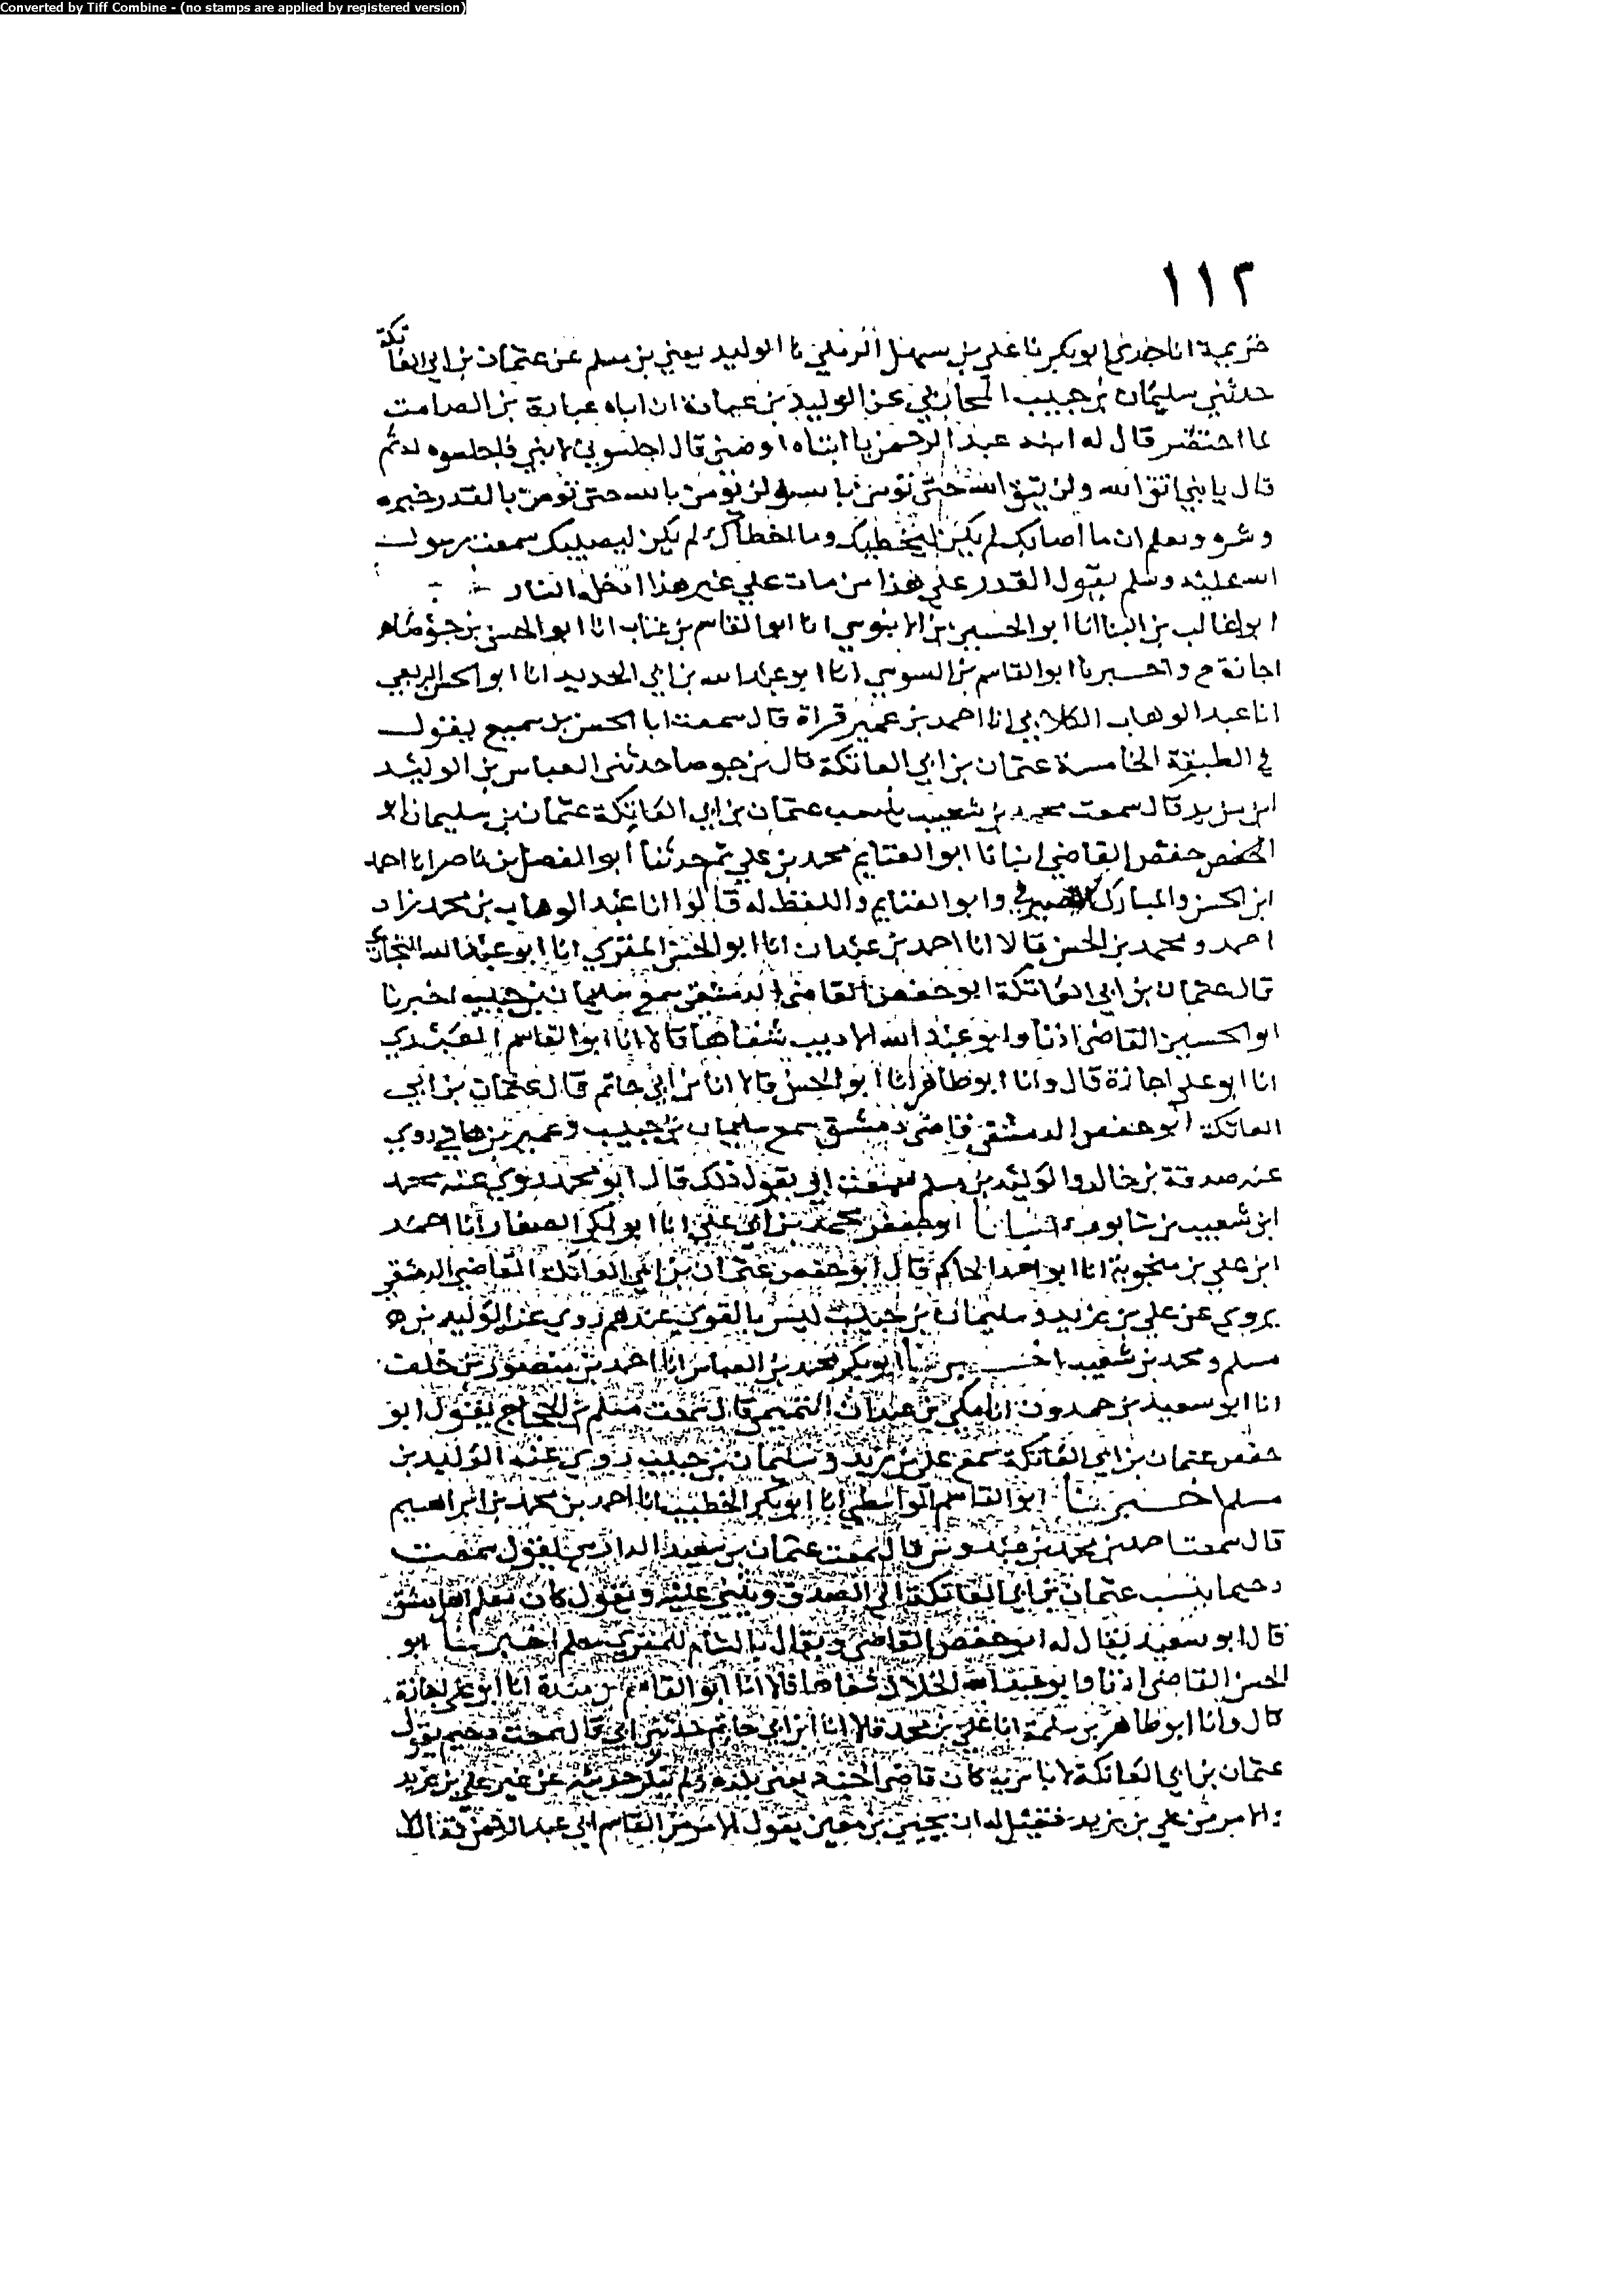 Converted by Tiff Combine - (no stamps are applied by registered version)
١١٢
خزيمة انا جدي ابو بكر نا علي بن سهل الرملي نا الوليد يعني بن مسلم عن عثمان بن ابي العاتكة
حدثني سليمان بن حبيب المحاربي عن الوليد بن عبادة ان اباه عبادة بن الصامت
لما احتضر قال له ابنه عبد الرحمن يا ابتاه اوصني قال اجلسوني لابني فاجلسوه له ثم
قال يا بني اتق الله ولن تتق الله حتى تؤمن بالله ولن تؤمن بالله حتى تؤمن بالقدر خيره
وشره وتعلم ان ما اصابك لم يكن ليخطيك وما اخطاك لم يكن ليصيبك سمعت رسول
الله عليه وسلم يقول القدر علي هذا من مات علي غير هذا ادخل النار
ابو غالب بن البنا انا ابو الحسين بن الابنوسي انا ابو القاسم بن عتاب انا ابو الحسن بن جوصاء
اجازة ح و اخبرنا ابو القاسم بن السوسي انا ابو عبد الله بن ابي الحديد انا ابو الحسن الربعي
انا عبد الوهاب الكلابي انا احمد بن عمير قراة قال سمعت ابا الحسن بن سميع يقول
في الطبقة الخامسة عثمان بن ابي العاتكة قال بن جوصا حدثني العباس بن الوليد
ابن مزيد قال سمعت محمد بن شعيب عثمان بن ابي العاتكة عثمان بن سليمان
حفص القاضي انبانا ابو الغنايم محمد بن علي ثم حدثنا ابو الفضل بن ناصر انا احمد
ابن الحسن والمبارك وابو الغنايم واللفظ له قالوا انا عبد الوهاب بن محمد زاد
احمد ومحمد بن الحسن قالا انا احمد بن عبدان انا ابو الحسن المقري انا ابو عبد الله البخاري
قال عثمان بن ابي العاتكة ابو حفص القاضي الدمشقي سمع سليمان بن حبيب اخبرنا
ابو الحسين القاضي اذنا وابو عبد الله الاديب شفاها قالا انا ابو القاسم العبدي
انا ابو علي اجازة قال وانا ابو طاهر انا ابو الحسن قالا انا بن ابي حاتم قال عثمان بن ابي
العاتكة ابو حفص الدمشقي قاضي دمشق سمع سليمان بن حبيب وعمير بن هاني روي
عنه صدقة بن خالد والوليد بن مسلم سمعت ابي يقول ذلك قال ابو محمد روي عنه محمد
ابن شعيب بن شابور انبانا ابو جعفر محمد بن ابي علي انا ابو بكر الصفار انا احمد
ابن علي بن منجويه انا ابو احمد الحاكم قال ابو حفص عثمان بن ابي العاتكة القاضي الدمشقي
يروي عن علي بن يزيد وسليمان بن حبيب ليس بالقوي عندهم روي عنه الوليد بن
مسلم ومحمد بن شعيب اخبرنا ابو بكر محمد بن العباس انا احمد بن منصور بن خلف
انا ابو سعيد بن حمدون انا مكي بن عبدان التميمي قال سمعت مسلم بن الحجاج يقول ابو
حفص عثمان بن ابي العاتكة سمع علي بن يزيد وسليمان بن حبيب روي عنه الوليد بن
مسلم اخبرنا ابو القاسم الواسطي انا ابو بكر الخطيب انا احمد بن محمد بن ابراهيم
قال سمعت احمد بن محمد بن عبدوس قال سمعت عثمان بن سعيد الدارمي يقول سمعت
دحيما ينسب عثمان بن ابي العاتكة الي الصدق ويثني عليه ويقول كان معلم اهل دمشق
قال ابو سعيد يقال له ابو حفص القاضي ويقال بالشام للمقري معلم اخبرنا ابو
الحسن القاضي اذنا وابو عبد الله الخلال شفاها قالا انا ابو القاسم بن مندة انا ابو علي اجازة
قال وانا ابو طاهر بن سلمة انا علي بن محمد قالا انا ابن ابي حاتم حدثني ابي قال سمعت دحيم يقول
عثمان بن ابي العاتكة لا باس به كان قاضي الجند يعني بلده ولم ينكر حديثه عن غير علي بن يزيد
والامر من علي بن يزيد فقيل له ان يحيى بن معين يقول الامر من القاسم ابي عبد الرحمن فقال لا